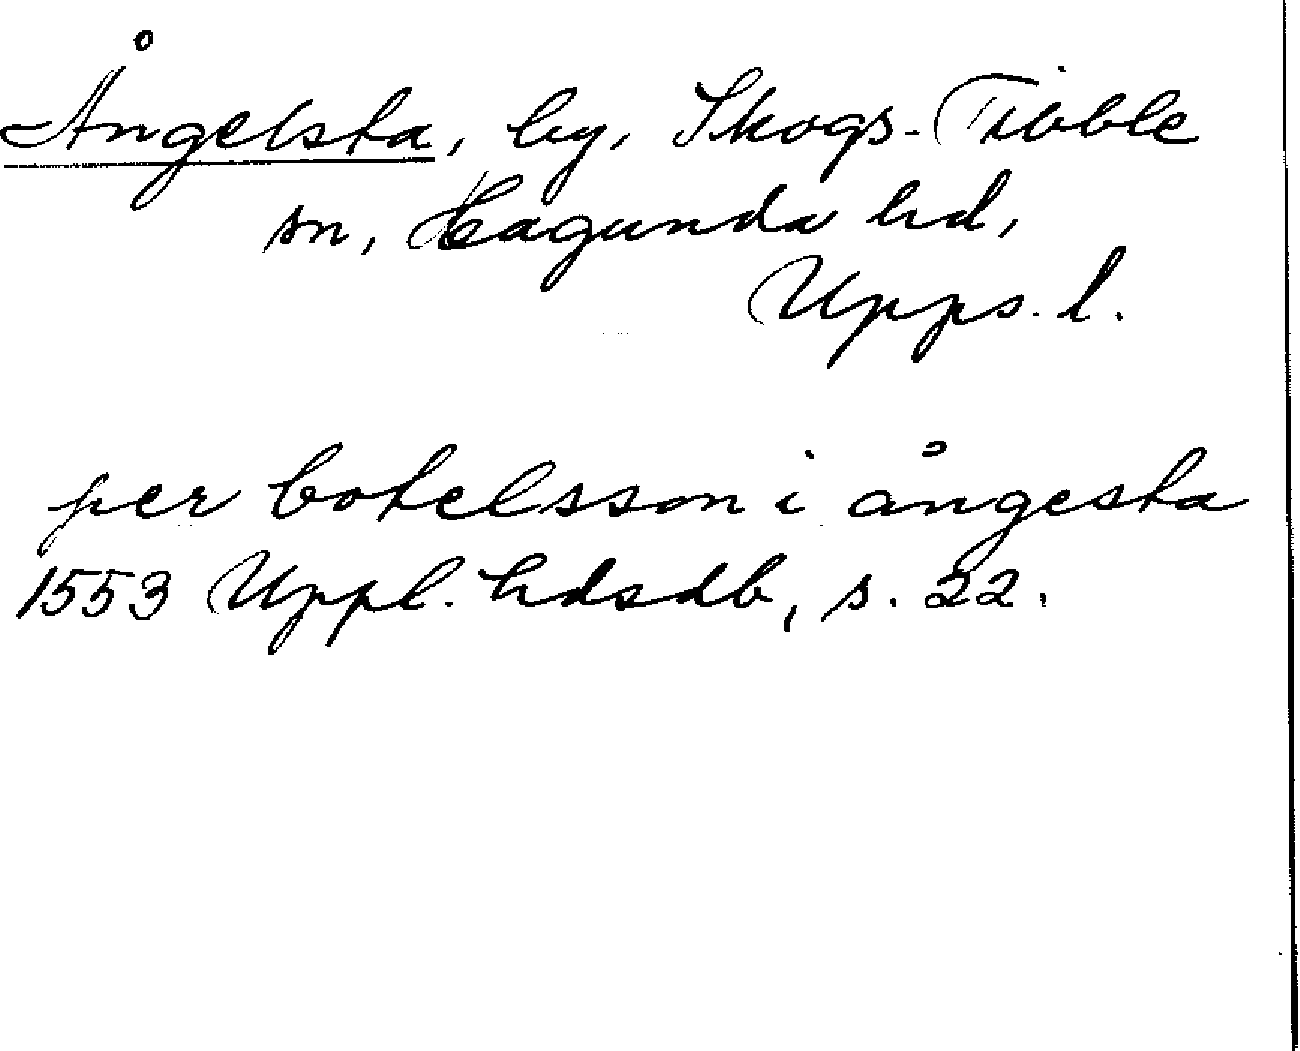 Ångelsta, by, Skogs-Tibble
sn, Hagunda hd,
Upps. l.
per botelsson i ångesta
1553 Uppl. hdsdb, s. 22.